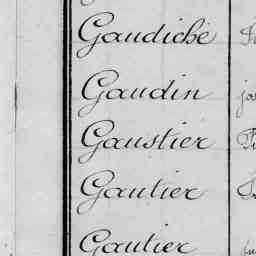 Gaudiché
Gaudin
Gaustier
Gautier
Gautier